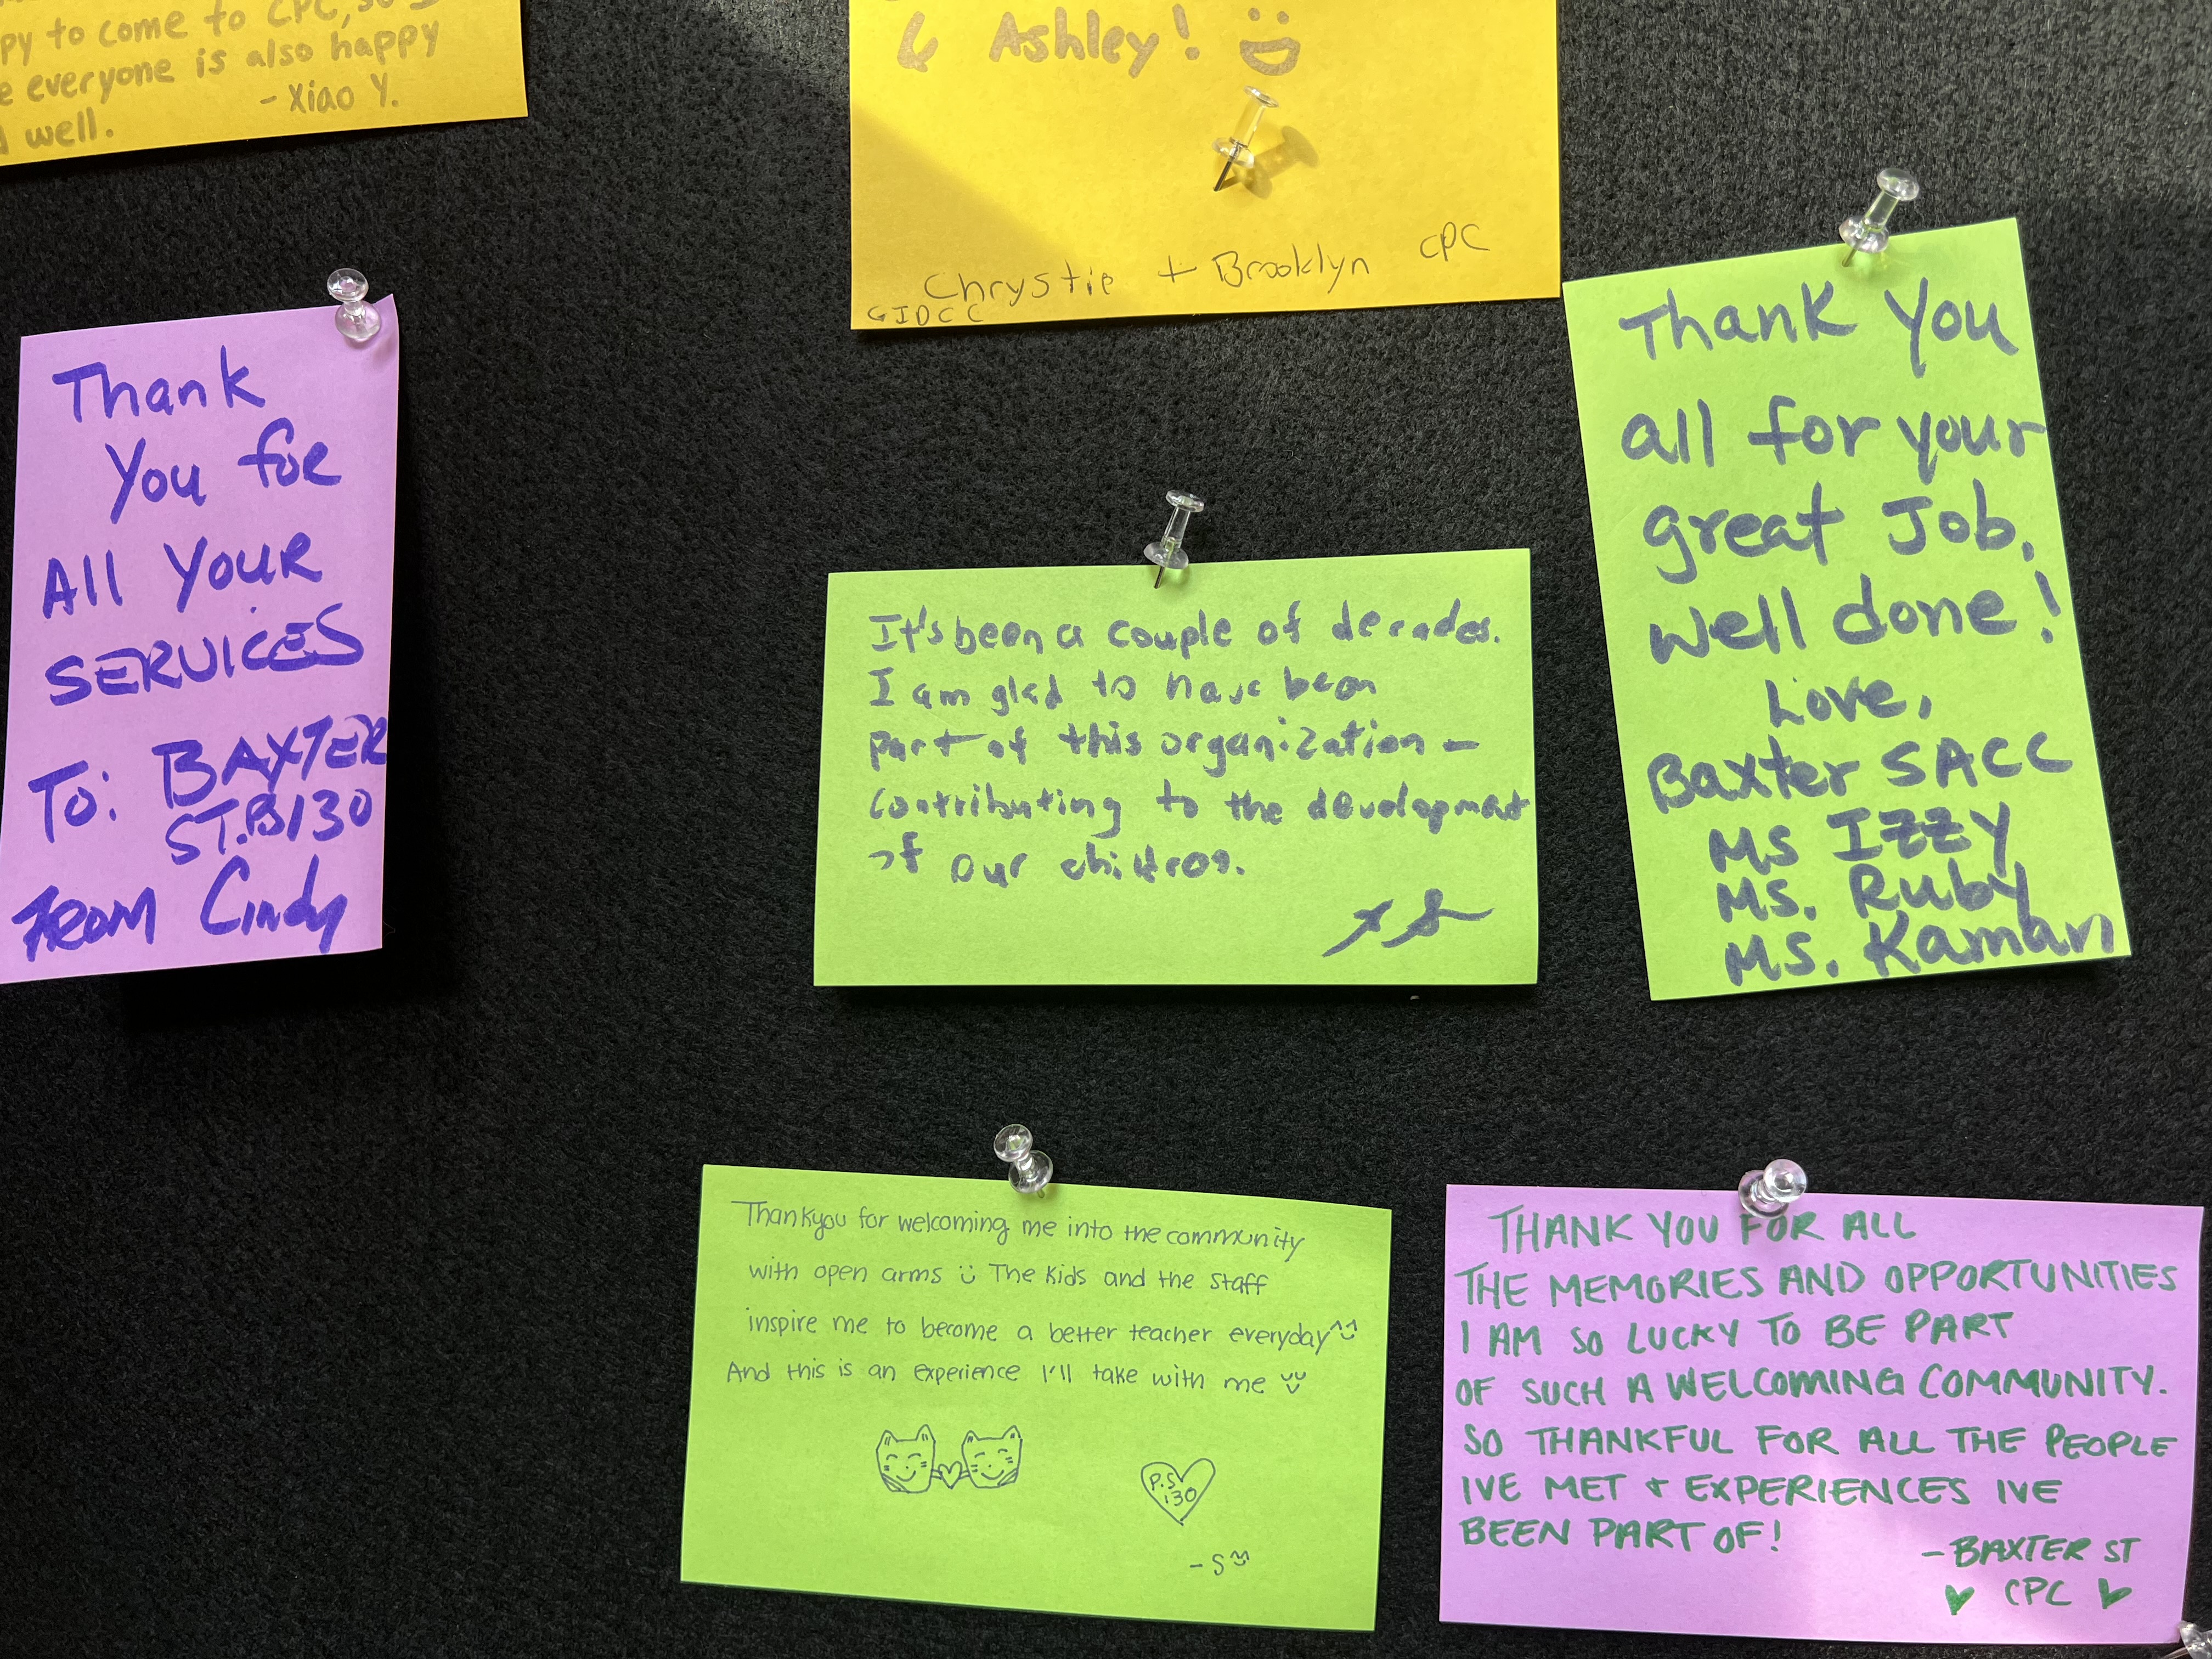 py to come to CPC, so I
e everyone is also happy
- Xiao Y.
well.
& Ashley!
Chrystie + Brooklyn CPC
GIDCC
Thank
You for
All YOUR
SERVICES
To: BAXTER
ST. B130
FROM Cindy
It's been a couple of decades.
I am glad to have been
part of this organization -
contributing to the development
of our children.
Thank You
all for your
great Job,
Well done!
Love,
Baxter SACC
Ms IZZY
Ms. Ruby
Ms. Kaman
Thankyou for welcoming me into the community
with open arms The Kids and the staff
inspire me to become a better teacher everyday
And this is an experience I'll take with me
P.S
130
- S
THANK YOU FOR ALL
THE MEMORIES AND OPPORTUNITIES
I AM SO LUCKY TO BE PART
OF SUCH A WELCOMING COMMUNITY.
SO THANKFUL FOR ALL THE PEOPLE
IVE MET + EXPERIENCES IVE
BEEN PART OF!
- BAXTER ST
CPC